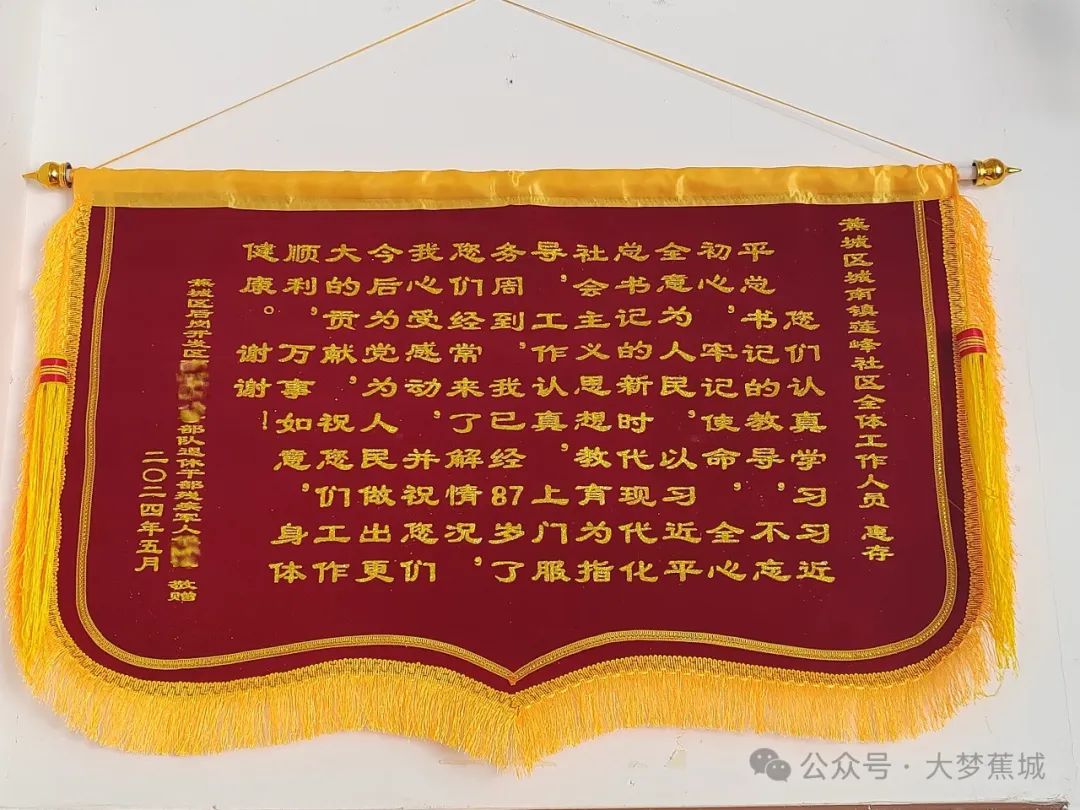 蕉城区城南镇莲峰社区全体工作人员 惠存
您们认真学习习近
平总书记的教导，不忘
初心，牢记使命，全心
全意为人民，以习近平
总书记的新时代现代化
社会主义思想，教育为指
导，工作认真，上门服
务周到，我已经87岁，了
您们经常来了解情况，
我心受感动，并祝您们
今后为党为人民做出更
大的贡献，祝您们工作
顺利，万事如意，身体
健康。谢谢！
蕉城区后岗开发区部队退休干部残疾军人 敬赠
二〇二四年五月
公众号·大梦蕉城